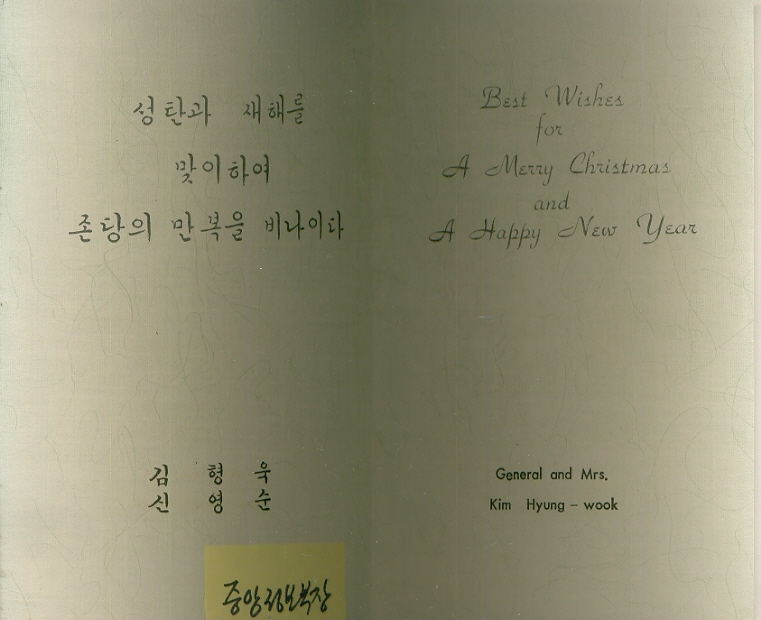 성탄과 새해를
맞이하여
존당의 만복을 비나이다
김 형 욱
신 영 순
중앙정보부장
Best Wishes
for
A Merry Christmas
and
A Happy New Year
General and Mrs.
Kim Hyung - wook